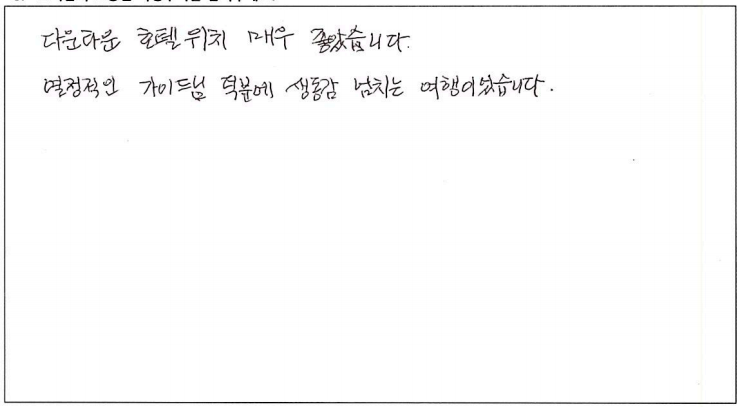 다운타운 호텔 위치 매우 좋았습니다.
열정적인 가이드님 덕분에 생동감 넘치는 여행이었습니다.